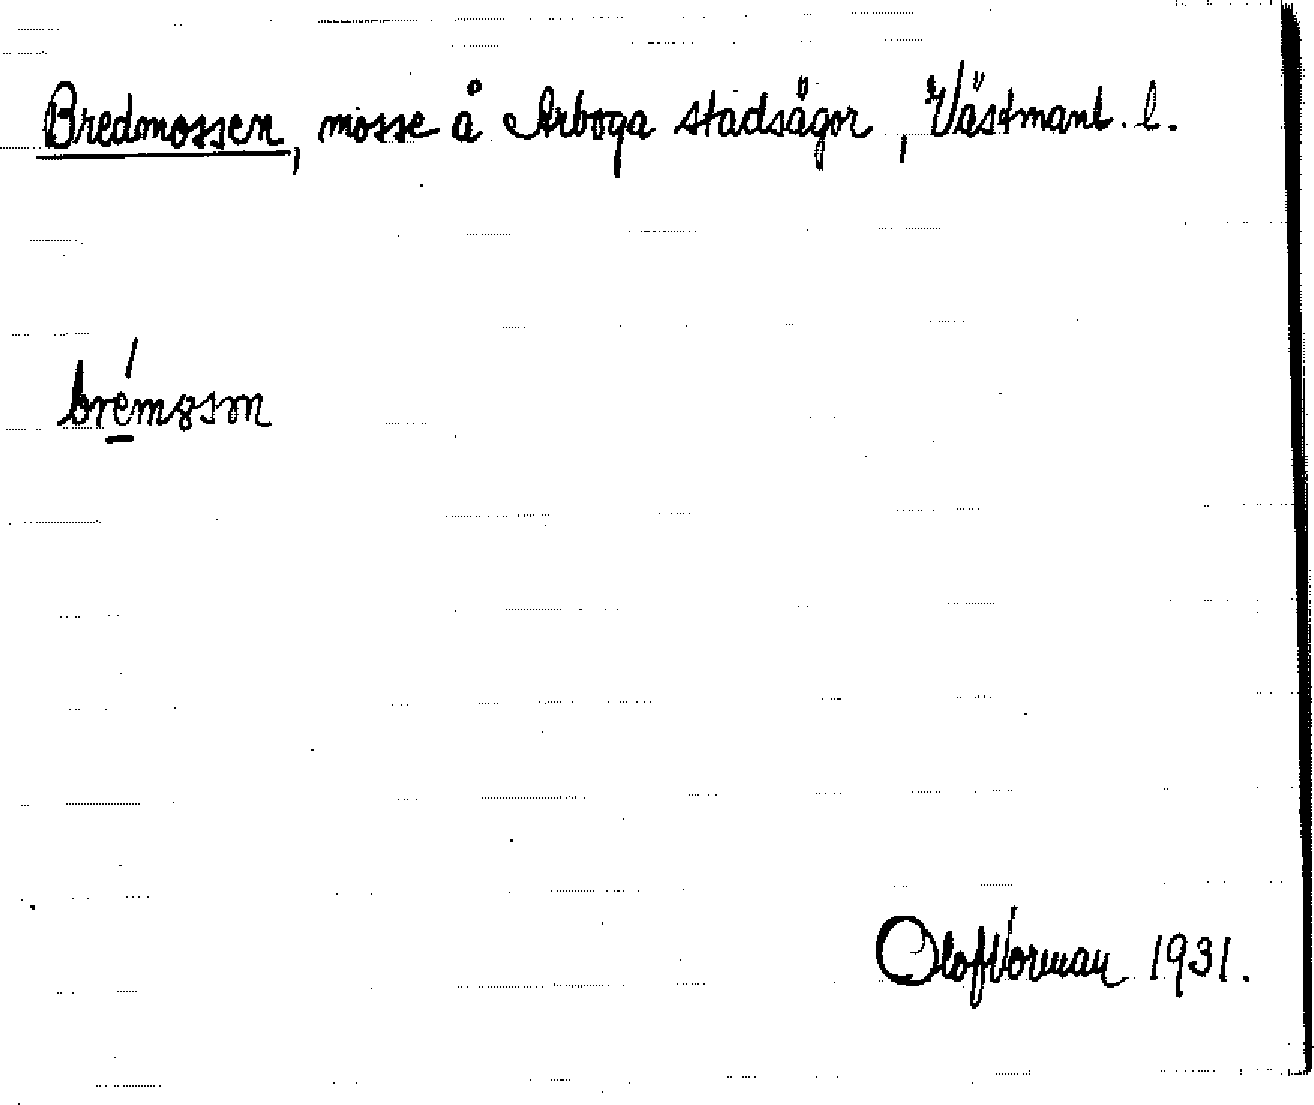 Bredmossen, mosse å Arboga stadsägor, Västmanl. l.
Olof Vorman 1931.